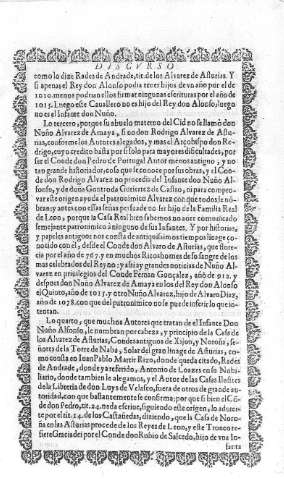 DISCVRSO
como lo dize Rades de Andrade, tit. de los Alvarez de Asturias. Y
si apenas el Rey don Alonso podia tener hijos de vn año por el de
1010. menos podrian ellos firmar ningunas escrituras por el año de
1015. Luego este Cavallero no es hijo del Rey don Alonso, luego
no es el Infante don Nuño.
Lo tercero, porque su abuelo materno del Cid no se llamò don
Nuño Alvarez de Amaya, sino don Rodrigo Alvarez de Astu-
rias, conforme los Autores alegados, y mas el Arçobispo don Ro-
drigo, cuyo credito basta por si solo para mayores dificultades, por
ser el Conde don Pedro de Portugal Autor menos antiguo; y no
tan grande historiador, cosa que se conoce por sus obras, y el Con-
de don Rodrigo Alvarez no procedio del Infante don Nuño Al-
fonso, y de doña Gontroda Gutierrez de Castro, ni para compro-
var este origen ayuda el patronimico Alvarez con que todos le nõ-
bran; y antes con essas señas persuade no ser hijo de la Familia Real
de Leon, porque la Casa Real bien sabemos no aver comunicado
semejante patronimico à ninguno de sus Infantes. Y por historias,
y papeles antiguos nos consta de antiquissimos tiempos linage co-
nocido con el, desde el Conde don Alvaro de Asturias, que flore-
cia por el año de 767. y en muchos Ricoshomes de su sangre de los
mas celebrados del Reyno; y assi ay grandes noticias de Nuño Al-
varez en privilegios del Conde Fernan Gonçalez, año de 912. y
despues don Nuño Alvarez de Amaya en los del Rey don Alonso
el Quinto, año de 1015. y otro Nuño Alvarez, hijo de Alvaro Diaz,
año de 1078. con que del patronimico no se puede inferir lo que in-
tentan.
Lo quarto, que muchos Autores que tratan de el Infante Don
Nuño Alfonso, le nombran por cabeza, y principio de la Casa de
los Alvarez de Asturias, Condes antiguos de Xijon, y Noroña, se-
ñores de la Torre de Nabà, Solar del gran linage de Asturias, co-
mo consta en Iuan Pablo Martir Rizo, donde queda citado, Rades
de Andrade, donde ya referido, Antonio de
liario, donde tambien le alegamos, y el Autor de las Casas Ilustres
de la Libreria de don Luys de Velasco, fuera de otros de grande au-
toridad, con que bastantemente se confirma; por que si bien el Cõ-
de don Pedro, tit. 24. nada escrive, siguiendo este origen, lo advier-
te por el tit. 14. de los Castañedas, diziendo, que la Casa de Noro-
ña en las Asturias procede de los Reyes de Leon, y este Tronco re-
fiere Gracia dei por el Conde don Rubio de Salcedo, hijo de vna In-
fanta